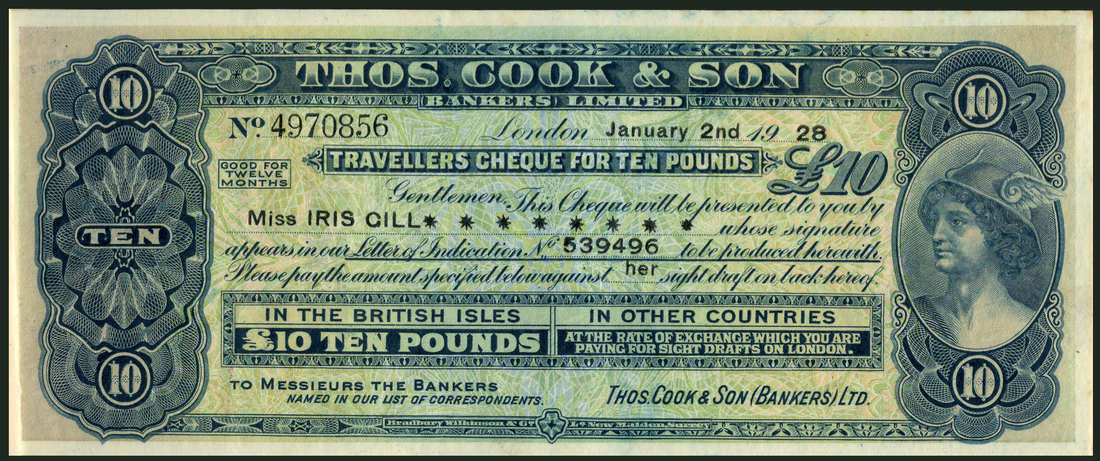 THOS. COOK & SON
(BANKERS) LIMITED
10
10
No. 4970856
London January 2nd 19 28
GOOD FOR TWELVE MONTHS
TRAVELLERS CHEQUE FOR TEN POUNDS
£10
Gentlemen, This Cheque will be presented to you by
Miss IRIS GILL * * * * * * * * whose signature
TEN
appears in our Letter of Indication No. 539496 to be produced herewith.
Please pay the amount specified below against her sight draft on back hereof.
IN THE BRITISH ISLES
£10 TEN POUNDS
IN OTHER COUNTRIES
AT THE RATE OF EXCHANGE WHICH YOU ARE
PAYING FOR SIGHT DRAFTS ON LONDON.
10
10
TO MESSIEURS THE BANKERS
NAMED IN OUR LIST OF CORRESPONDENTS.
THOS. COOK & SON (BANKERS) LTD.
Bradbury Wilkinson & Co. Ld. New Malden, Surrey